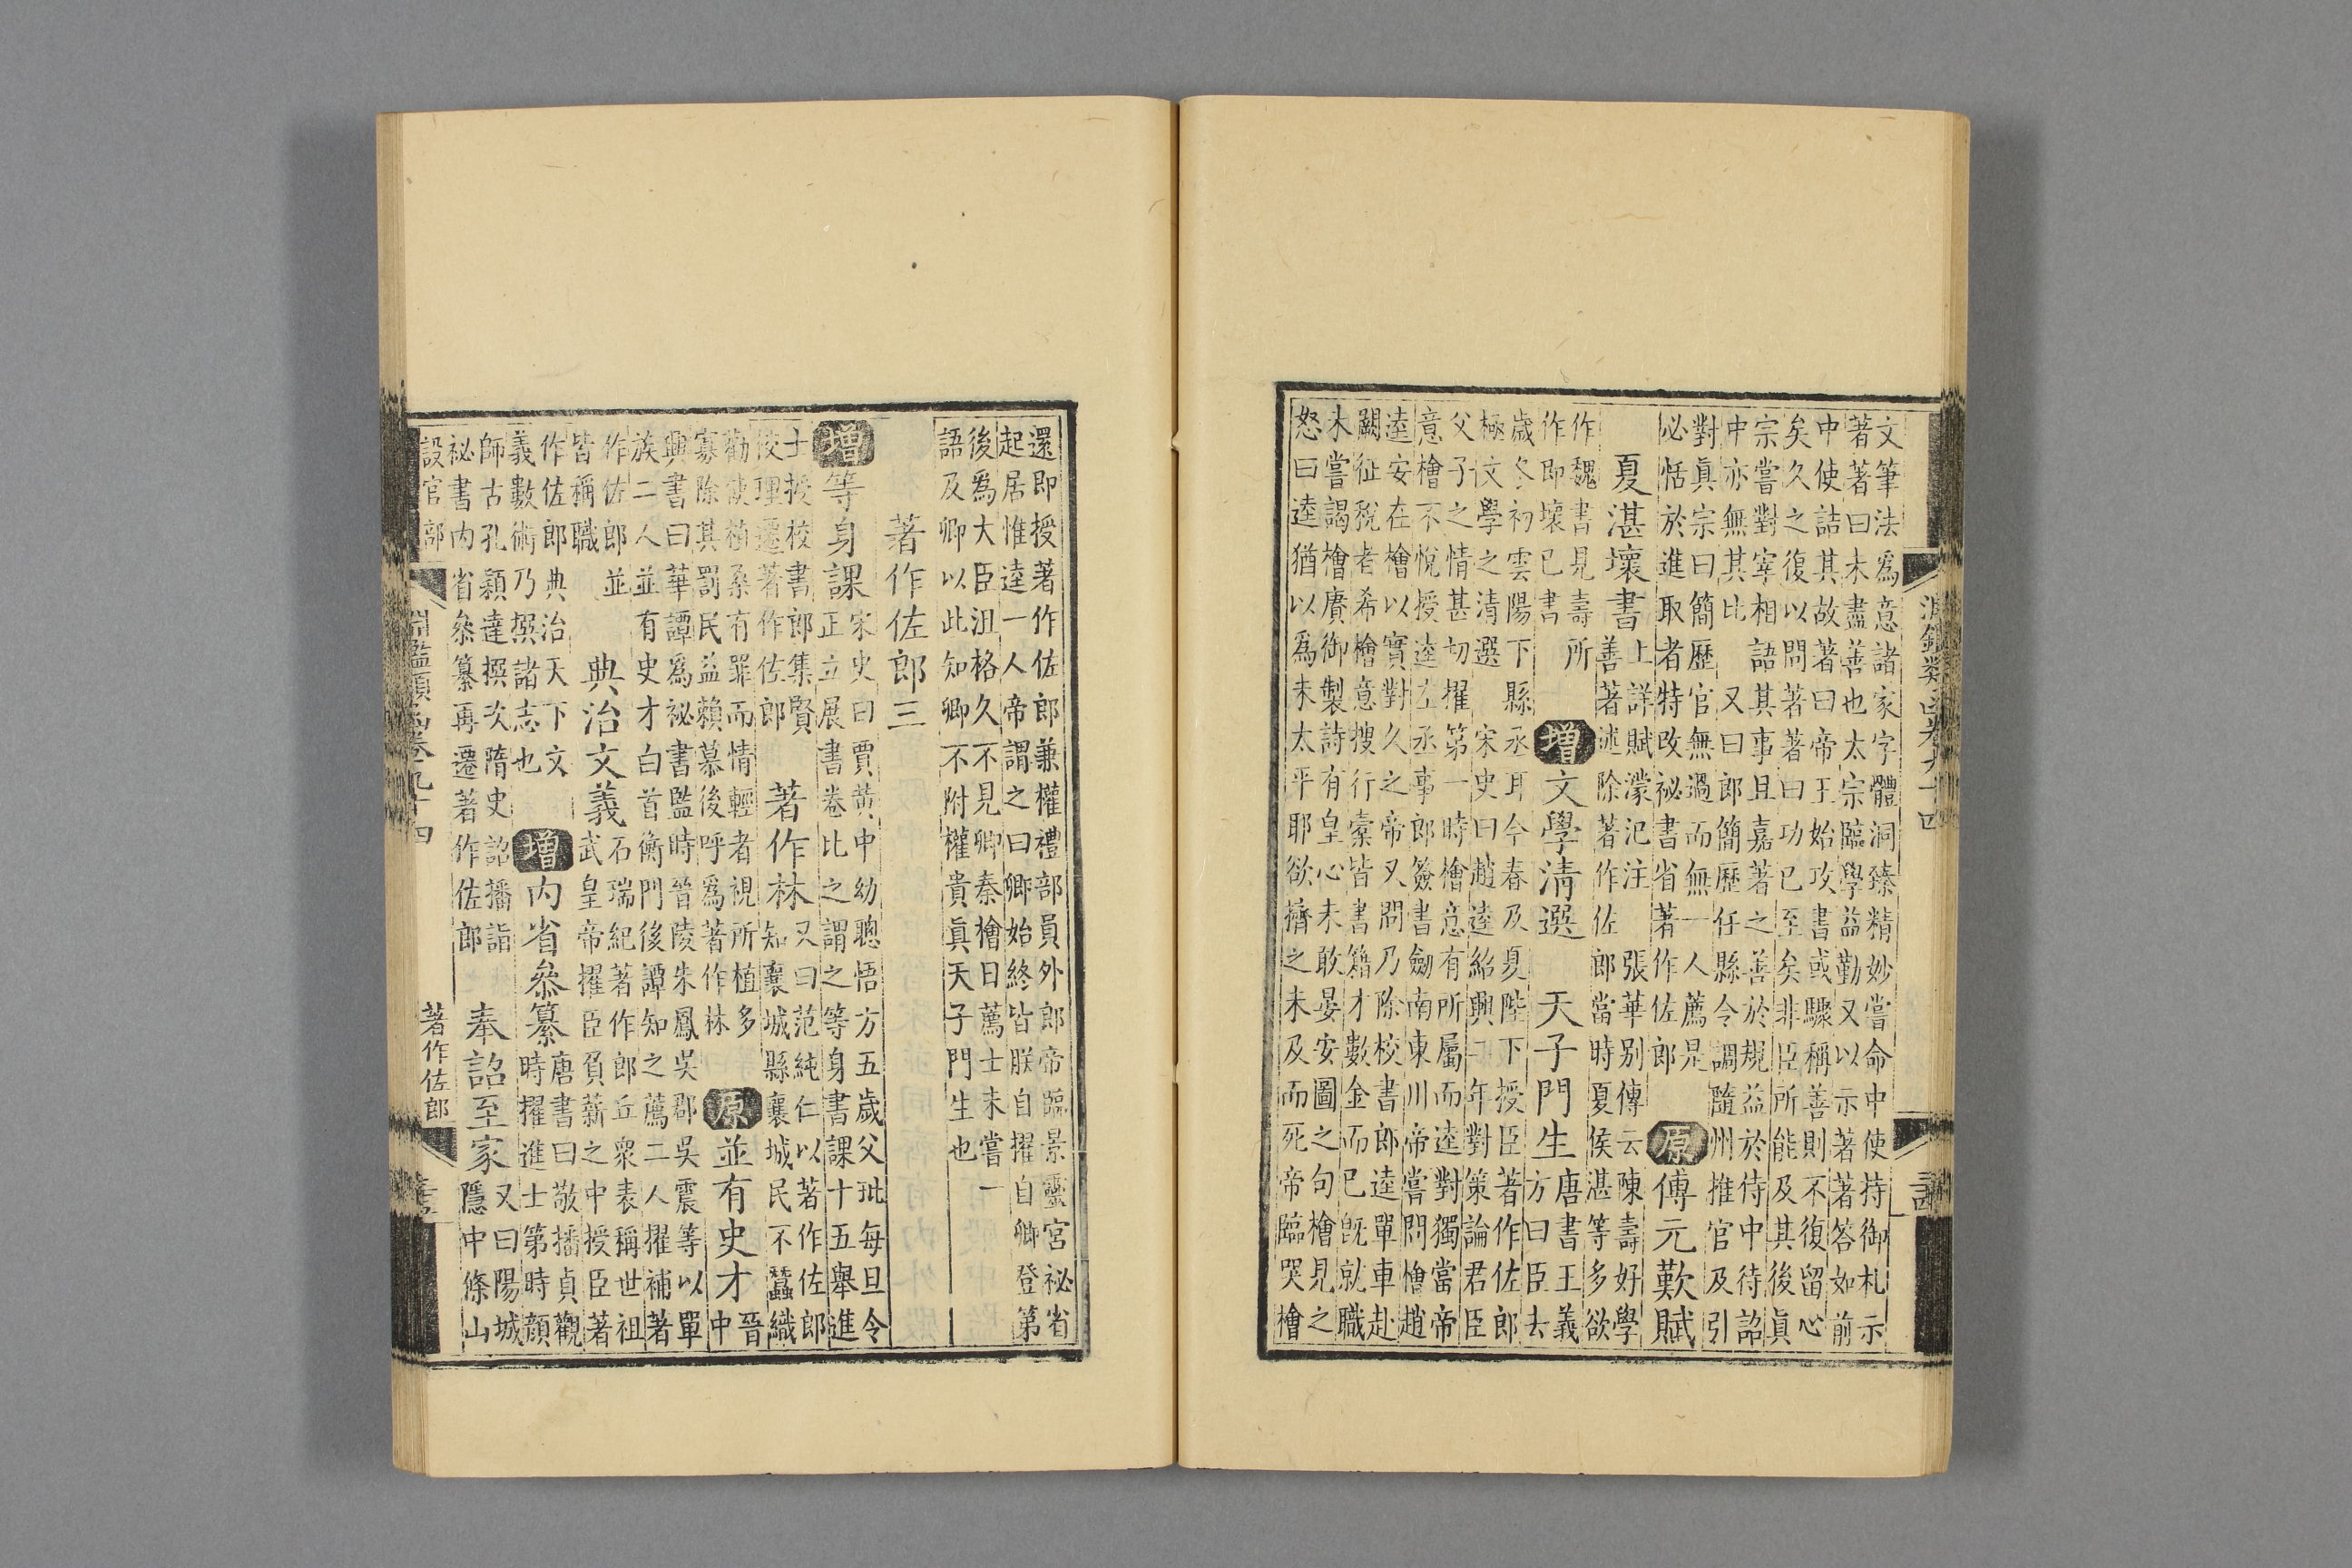 文筆法爲意諸家字體洞臻精妙嘗命中使持御札示
著著曰未盡善也太宗臨學益勤又以示著著答如前
中使詰其故著曰帝王始攻書或驟稱善則不復留心
矣久之復以問著著曰功已至矣非臣所能及其後眞
宗嘗對宰相語其事且嘉著之善於規益於侍中待詔
中亦無其比 又曰郎簡歷仕縣令調隨州推官及引
對眞宗曰簡歷官無過而無一人薦是
必恬於進取者特改祕書省著作佐郎
原 傅元歎賦
夏湛壞書
上詳賦濛汜注 張華别傳云陳壽好學
善著述除著作佐郎當時夏侯湛等多欲
作魏書見壽所
作即壞已書
增 文學清選 天子門生
唐書王義
方曰臣去
歲冬初雲陽下縣丞耳今春及夏陛下授臣著作佐郎
極文學之清選 宋史曰趙逵紹興二年對策論君臣
父子之情甚切擢第一時檜意有所屬而逵對獨當帝
意檜不悅授逵左丞事郎簽書劒南東川帝嘗問檜趙
逵安在檜以實對久之帝又問乃除校書郎逵單車赴
闕征稅者希檜意搜行槖皆書籍才數金而已旣就職
未嘗謁檜賡御製詩有皇心未敢晏安圖之句檜見之
怒曰逵猶以爲未太平耶欲擠之未及而死帝臨哭檜
還即授著作佐郎兼權禮部員外郎帝臨景靈宮祕省
起居惟逵一人帝謂之曰卿始終皆朕自擢自卿登第
後爲大臣沮格久不見卿秦檜日薦士未嘗一
語及卿以此知卿不附權貴眞天子門生也
著作佐郎三
增 等身課
宋史曰賈黃中幼聰悟方五歲父玭每旦令
正立展書卷比之謂之等身書課十五舉進
士授校書郎集賢
校理遷著作佐郎
著作林
又曰范純仁以著作佐郎
知襄城縣襄城民不蠶織
勸使植桑有罪而情輕者視所植多
寡除其罰民益賴慕後呼爲著作林
原 並有史才
晉中
興書曰華譚爲祕書監時晉陵朱鳳吳郡吳震等以單
族二人並有史才白首衡門後譚知之薦二人擢補著
作佐郎並
皆稱職
典治文義
石瑞紀著作郎丘衆表稱世祖
武皇帝擢臣負薪之中授臣著
作佐郎典治天下文
義數術乃撰諸志也
增 内省叅纂
唐書曰敬播貞觀
時擢進士第時顔
師古孔穎達撰次隋史詔播詣
祕書内省叅纂再遷著作佐郎
奉詔至家
又曰陽城
隱中條山
設官部
淵鑑類函卷九十四
著作佐郎